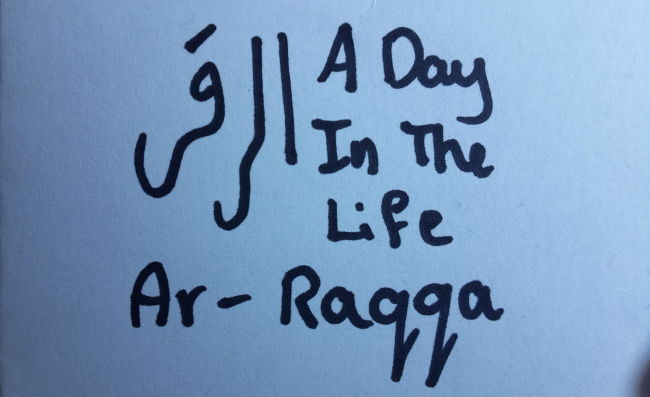 الرقَ
A Day
In The
Life
Ar-Raqqa